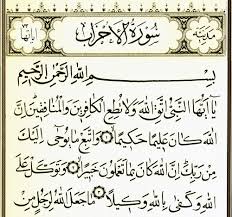 مَدَنِيَّة سُورَةُ الْأَحْزَابِ آيَاتُهَا
بِسْمِ اللَّهِ الرَّحْمَنِ الرَّحِيمِ
يَا أَيُّهَا النَّبِيُّ اتَّقِ اللَّهَ وَلَا تُطِعِ الْكَافِرِينَ وَالْمُنَافِقِينَ إِنَّ
اللَّهَ كَانَ عَلِيمًا حَكِيمًا ۝ وَاتَّبِعْ مَا يُوحَى إِلَيْكَ
مِنْ رَبِّكَ إِنَّ اللَّهَ كَانَ بِمَا تَعْمَلُونَ خَبِيرًا ۝ وَتَوَكَّلْ عَلَى
اللَّهِ وَكَفَى بِاللَّهِ وَكِيلًا ۝ مَا جَعَلَ اللَّهُ لِرَجُلٍ مِنْ